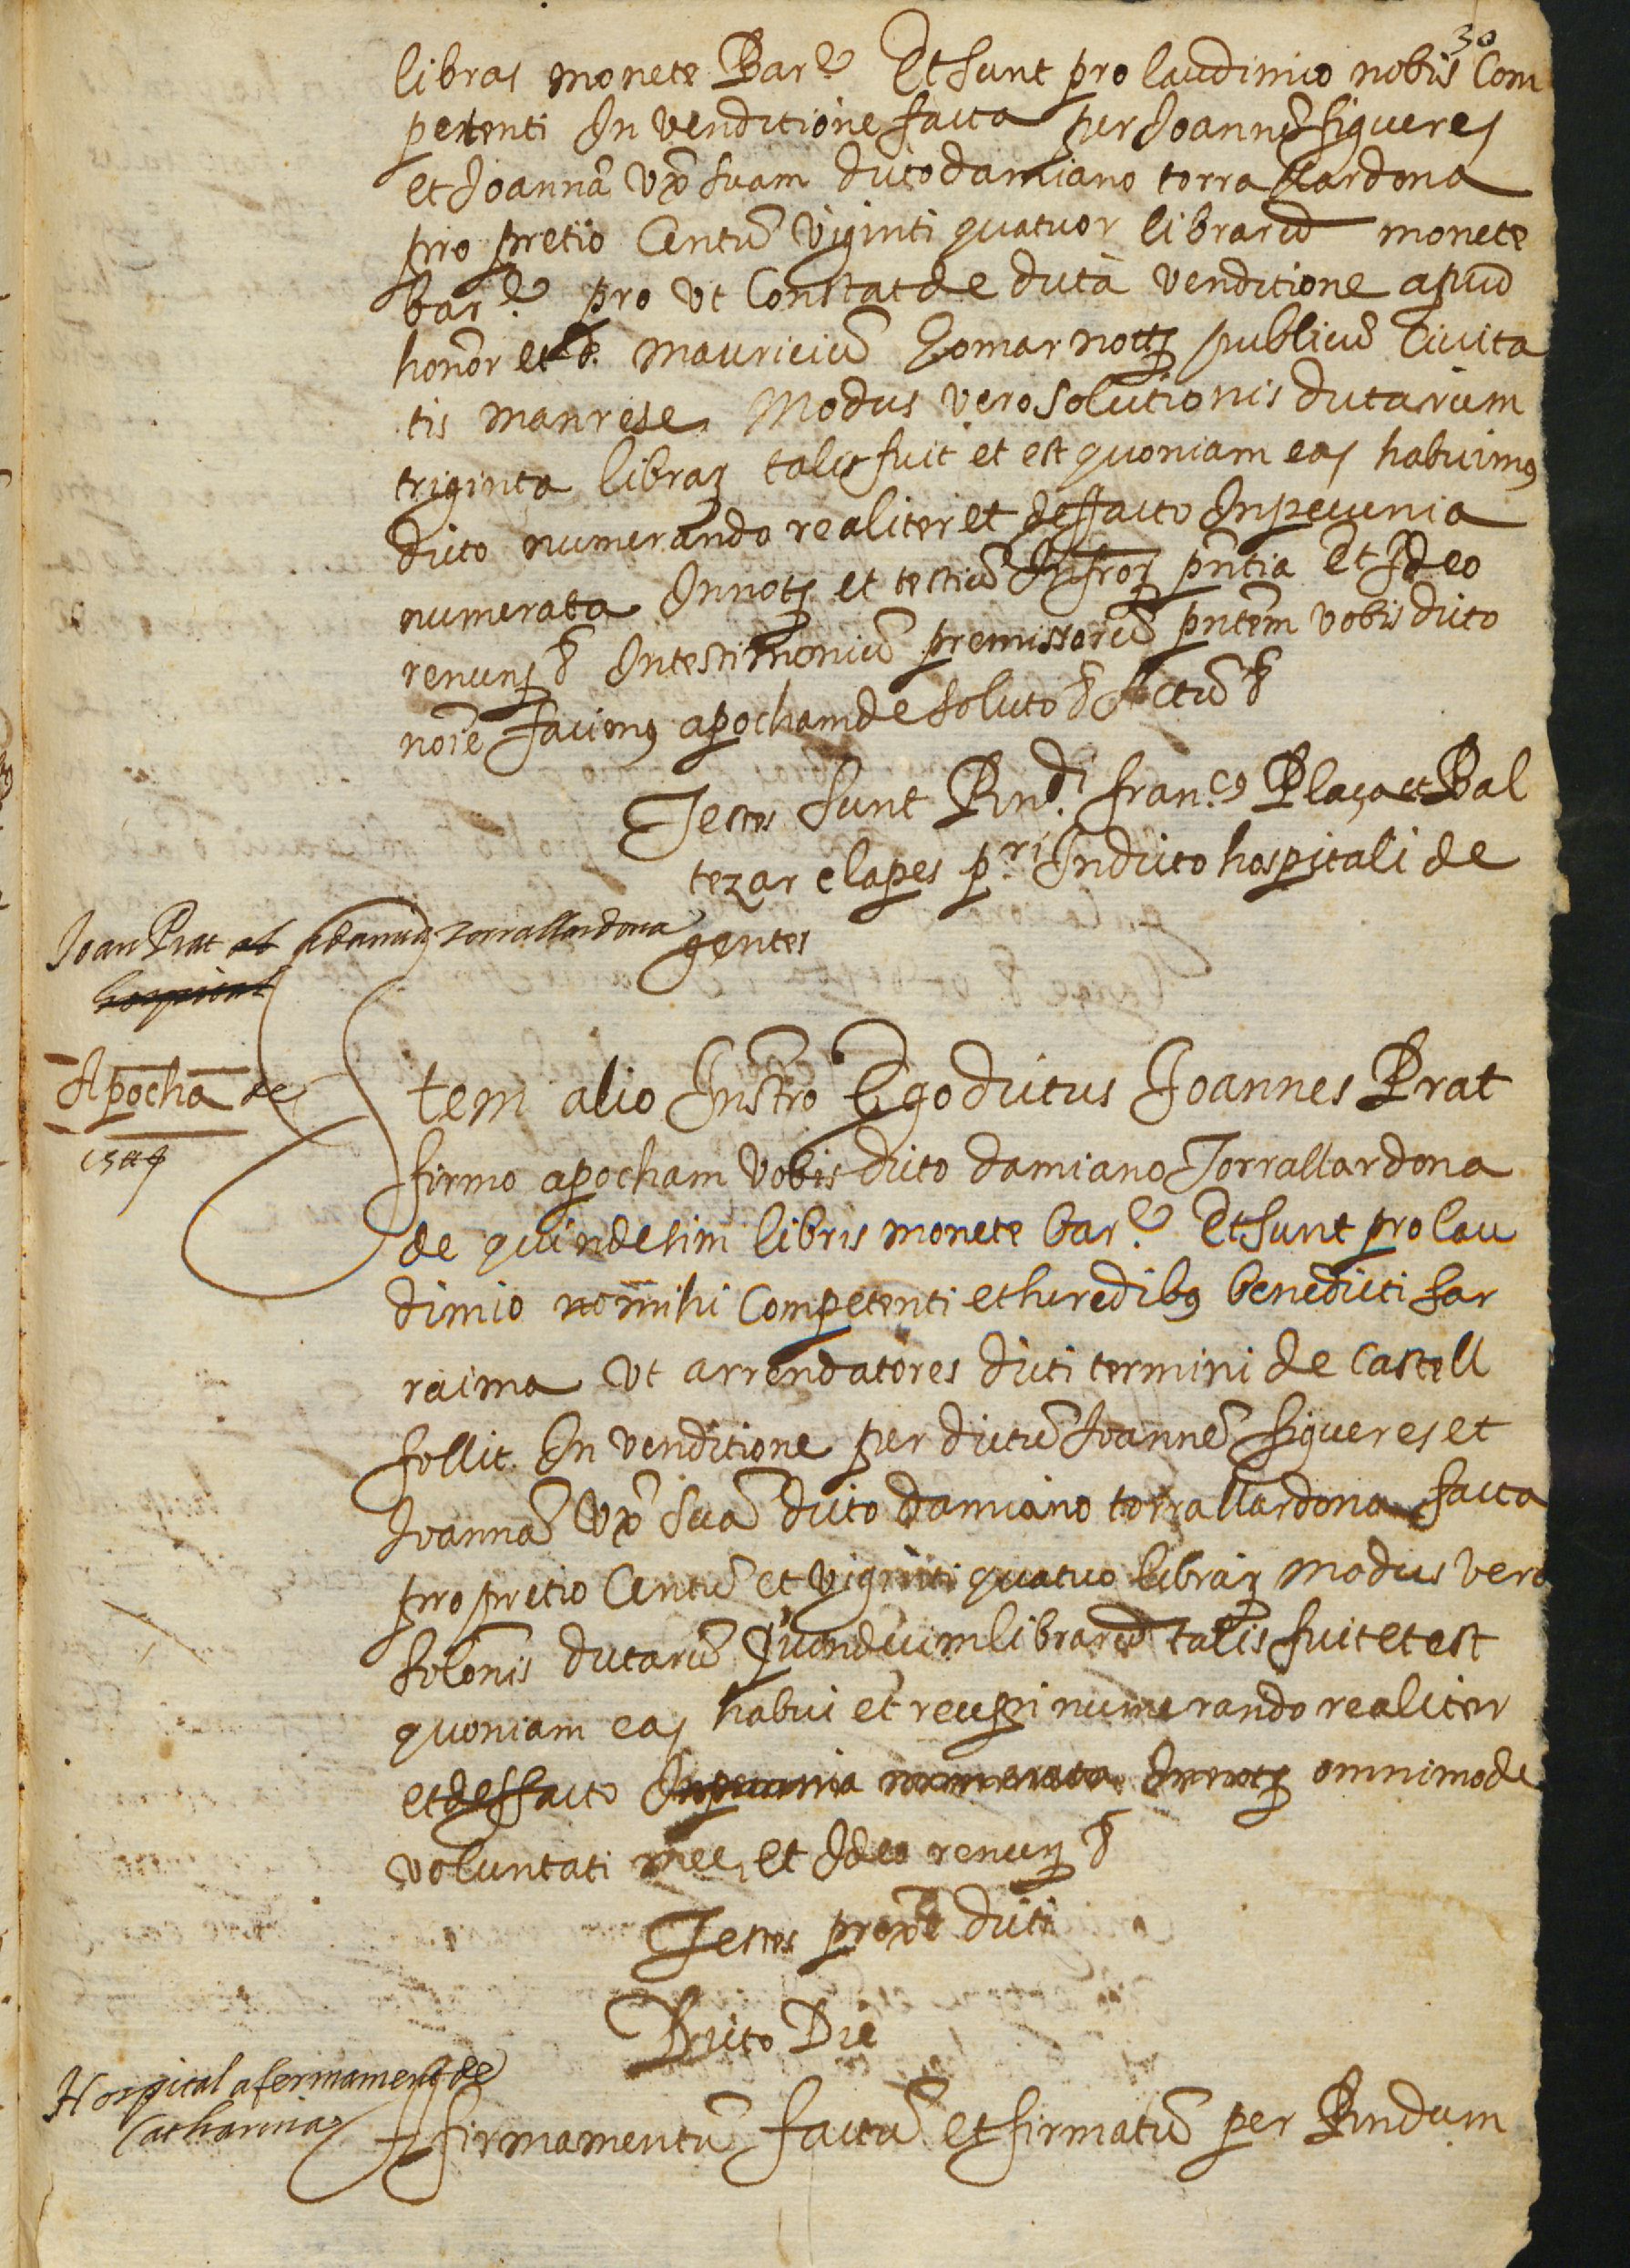 30
libras monete Bar.e Et sunt pro laudimio nobis Com
petenti In venditione facta per Joannẽ figueres
et Joannã vx̃ suam dicto damiano torra llardona
pro pretio Centũ viginti quatuor librarũ monete
bar.e pro vt Constat de dicta venditione apud
honor et d. mauriciũ Homar notm publicũ Ciuita
tis manrese. Modus vero solutionis dictarum
triginta librarz talis fuit et est quoniam eas habuimus
dicto numerando realiter et deffacto In pecunia
numerata In notz et testiũ Infrorz pñtia Et Ideo
renunz &c Intestimoniũ premissorũ pñtem vobis dicto
noie facimus apocham de soluto &c Actũ &c
Testes sunt Rndi franco Plaça et Bal
tezar clapes pri In dicto hospitali de
gentes
Joan Prat a damia torrallardona
hospital
Apocha de
15 ll
Item alio Instro Ego dictus Joannes Prat
firmo apocham vobis dicto damiano Torrallardona
de quindesim libris monete bar.e Et sunt pro lau
dimio no mihi Competenti et heredibus benedicti sar
raima vt arrendatores dicti termini de Castell
follit In venditione per dictũ Joannẽ figueres et
Joannã vx̃ suã dicto damiano torrallardona facta
pro pretio Centũ et viginti quatuo librarz modus vero
solonis dictarũ Quindecim librarũ talis fuit et est
quoniam eas habui et recepi numerando realiter
et deffacto In pecunia numerata In notz omnimode
voluntati mee, et Ideo renunz &c
Testes proxe dicti
Dicto Die
Hospital afermament de
Catharina
Affirmamentũ factũ et firmatũ per Rndum